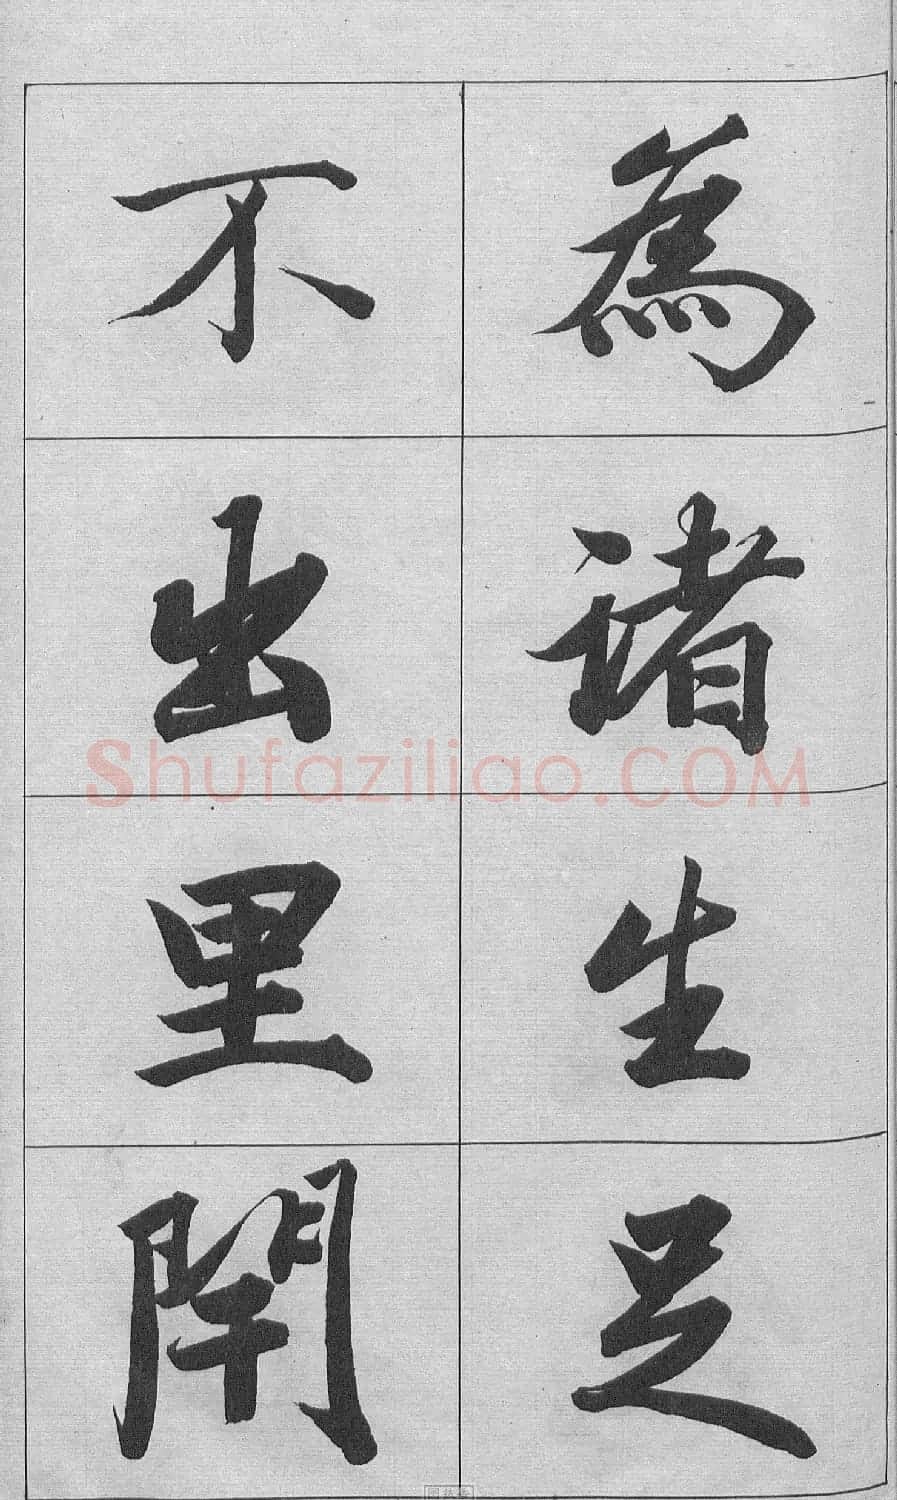 為諸生足
不出里閈
Shufaziliao.COM